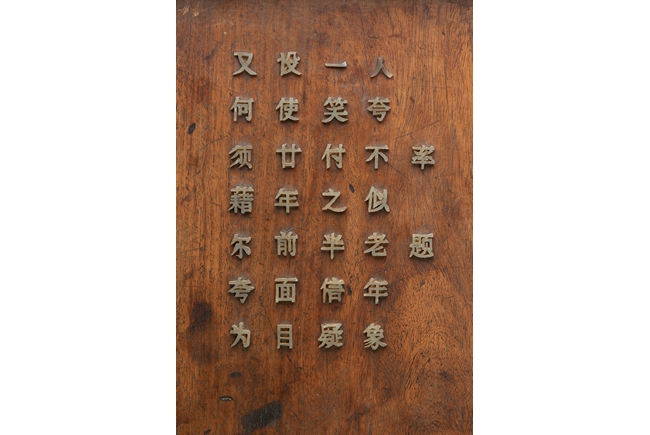 率题
人夸不似老年象
一笑付之半信疑
设使廿年前面目
又何须藉尔夸为